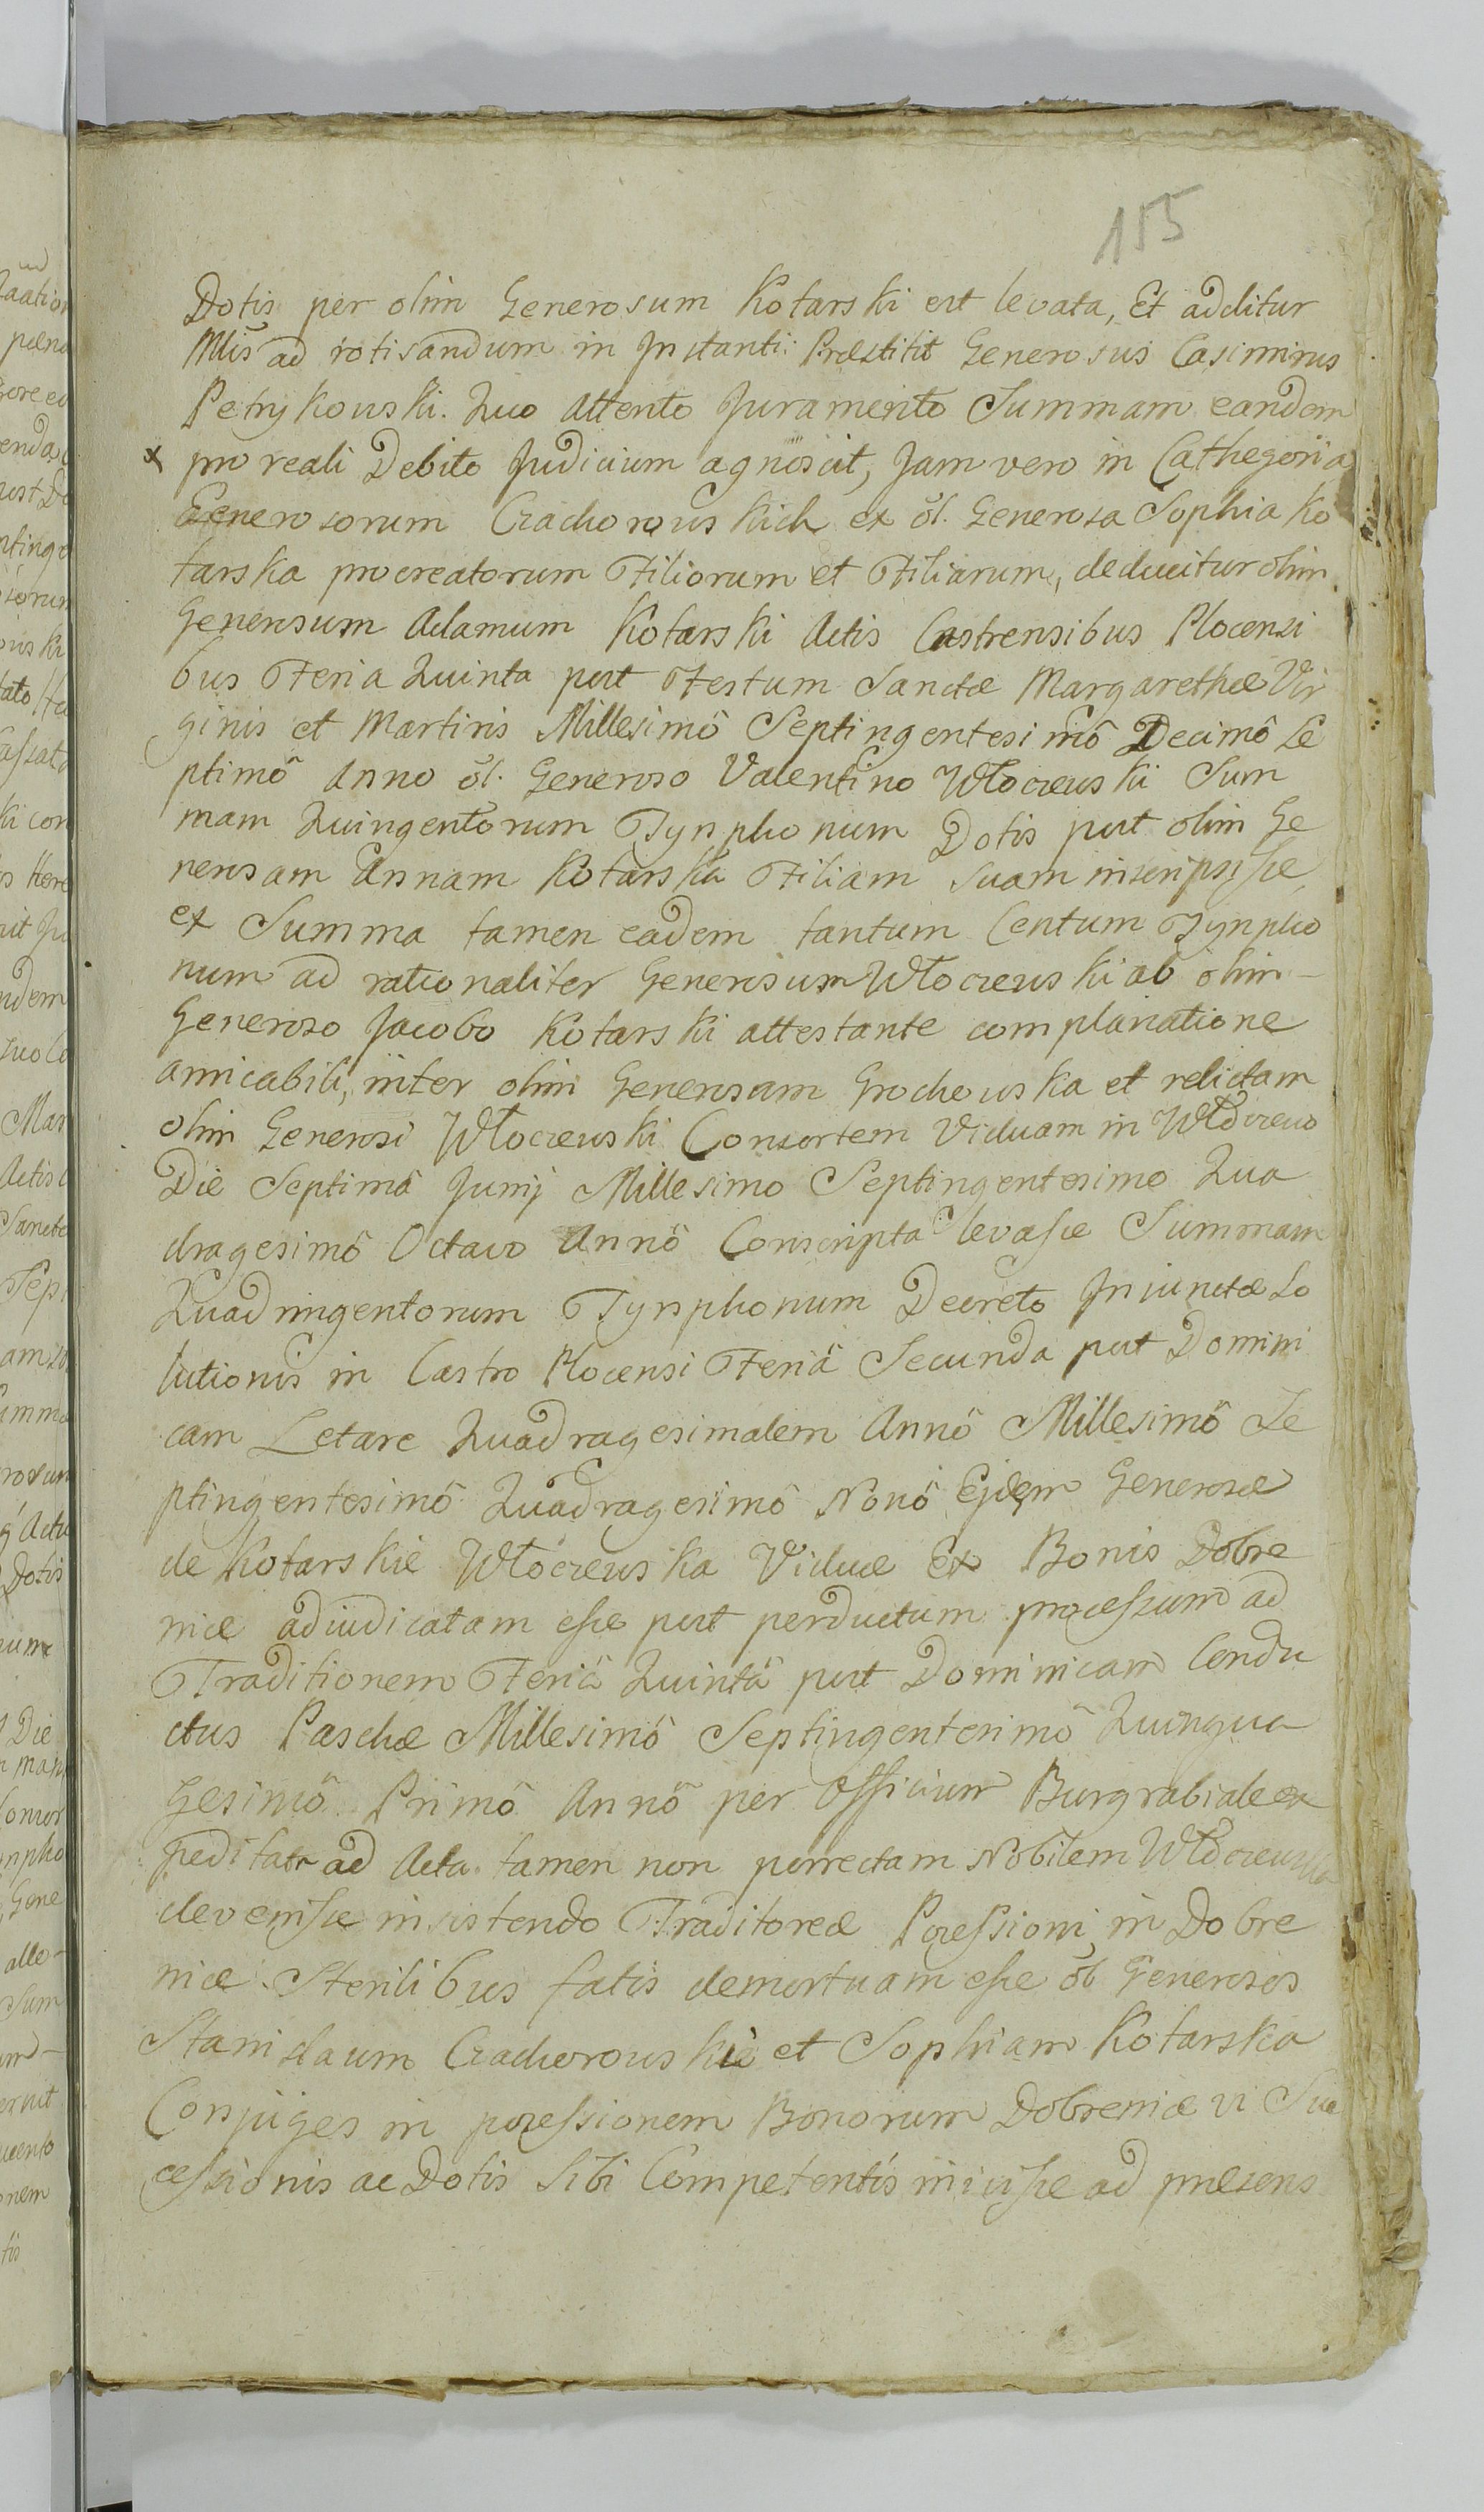 155
Dotis per olim Generosum Kotarski est levata, Et additur
Mtis ad rotisandum in Instanti: Præstitit Generosus Casimirus
Petrykowski. Quo attento Juramento Summam eandem
x pro reali Debito Judicium agnôscit, Jam vero in Cathegoria
Generosorum Czachorowskich ex ol. Generosa Sophia Ko
tarska procreatorum Filiorum et Filiarum, deducitur olim
Generosum Adamum Kotarski Actis Castrensibus Plocensi
bus Feria Quinta post Festum Sanctæ Margarethæ Vir
ginis et Martiris Millesimô Septingentesimô Decimô Se
ptimô Anno ol. Generoso Valentino Włoczewski Sum
mam Quingentorum Tynphonum Dotis post olim Ge
nerosam Annam Kotarska Filiam Suam inscripsisse,
ex Summa tamen eadem tantum Centum Tynpho
num ad rationaliter Generosum Włoczewski ab olim
Generoso Jacobo Kotarski attestante complanatione
amicabili, inter olim Generosam Grochowska et relictam
olim Generosi Włoczewski Consortem Viduam in Włoczewo
Die Septimâ Junij Millesimo Septingentesimo Qua
dragesimô Octavo Annô Conscripta levasse Summam
Quadringentorum Tynphonum Decreto Injunctæ So
lutionis in Castro Plocensi Feriâ Secunda post Domini
cam Letare Quadragesimalem Annô Millesimô Se
ptingentesimô Quadragesimô Nonô Ejdem Generosæ
de Kotarskie Włoczewska Viduæ Ex Bonis Dobre
nicæ adiudicatam esse post perductum processum ad
Traditionem Feriâ Quintâ post Dominicam Condu
ctus Paschæ Millesimô Septingentesimô Quinqua
gesimô Primô Annô per Officium Burgrabiale ex
peditam ad Acta tamen non porrectam Nobilem Włoczewska
devenisse insistendo Traditoreæ Possessioni, in Dobre
nicæ Sterilibus fatis demortuam esse ol. Generosos
Stanislaum Czachorowskie et Sophiam Kotarska
Conjuges in possessionem Bonorum Dobrenicæ vi Suc
cessionis ac Dotis Sibi Competentis inivisse ad præsens